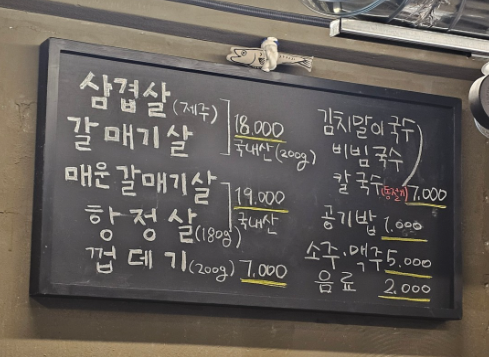 삼겹살(제주)
갈매기살
18.000
국내산(200g)
매운갈매기살
항정살(180g)
19.000
국내산
껍데기(200g) 7.000
김치말이국수
비빔국수
칼국수(동절기) 7,000
공기밥 1.000
소주·맥주 5.000
음료 2.000